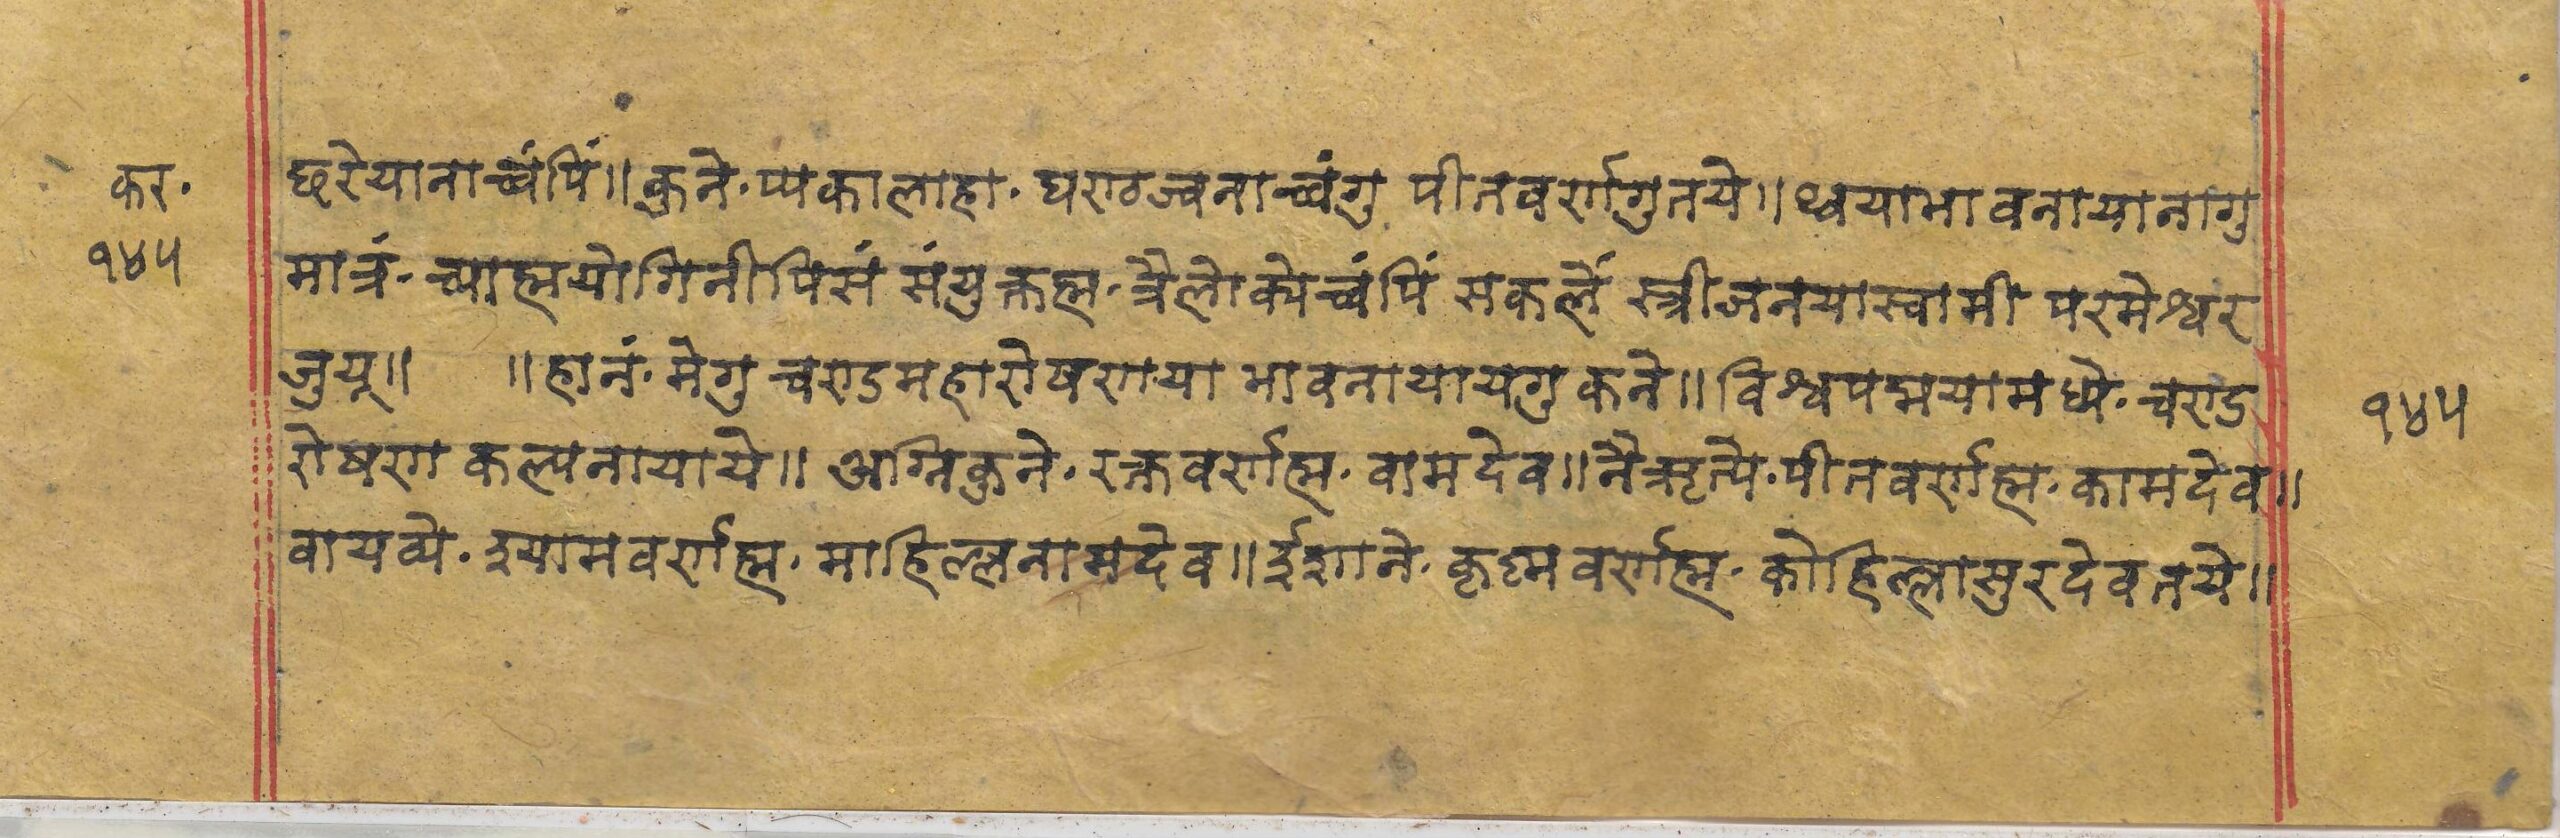 कर·
१४५
छरेयानाच्वंपिं॥ कुने· प्यकालाहा· घराठज्वनाच्वंगु पीतवर्रागुतये॥ थ्वयाभावनायानागु
मात्रं· च्याह्मयोगिनीपिसं संयुक्तह्म· त्रैलोक्येच्वंपिं सकलें स्त्रीजनयास्वामी परमेश्वर
जुयू॥ ॥ हानं· मेगु चराडमहारोषराया भावनायायगु कने॥ विश्वपद्मयामध्ये· चराड
१४५
रोषरा कल्पनायाये॥ अग्निकुने· रक्तवर्राह्म· वामदेव॥ नैऋत्ये· पीतवर्राह्म· कामदेव॥
वायव्ये· श्यामवर्राह्म· माहिल्लनामदेव॥ ईशाने· कृष्मवर्राह्म· कोहिल्लासुरदेवतये॥